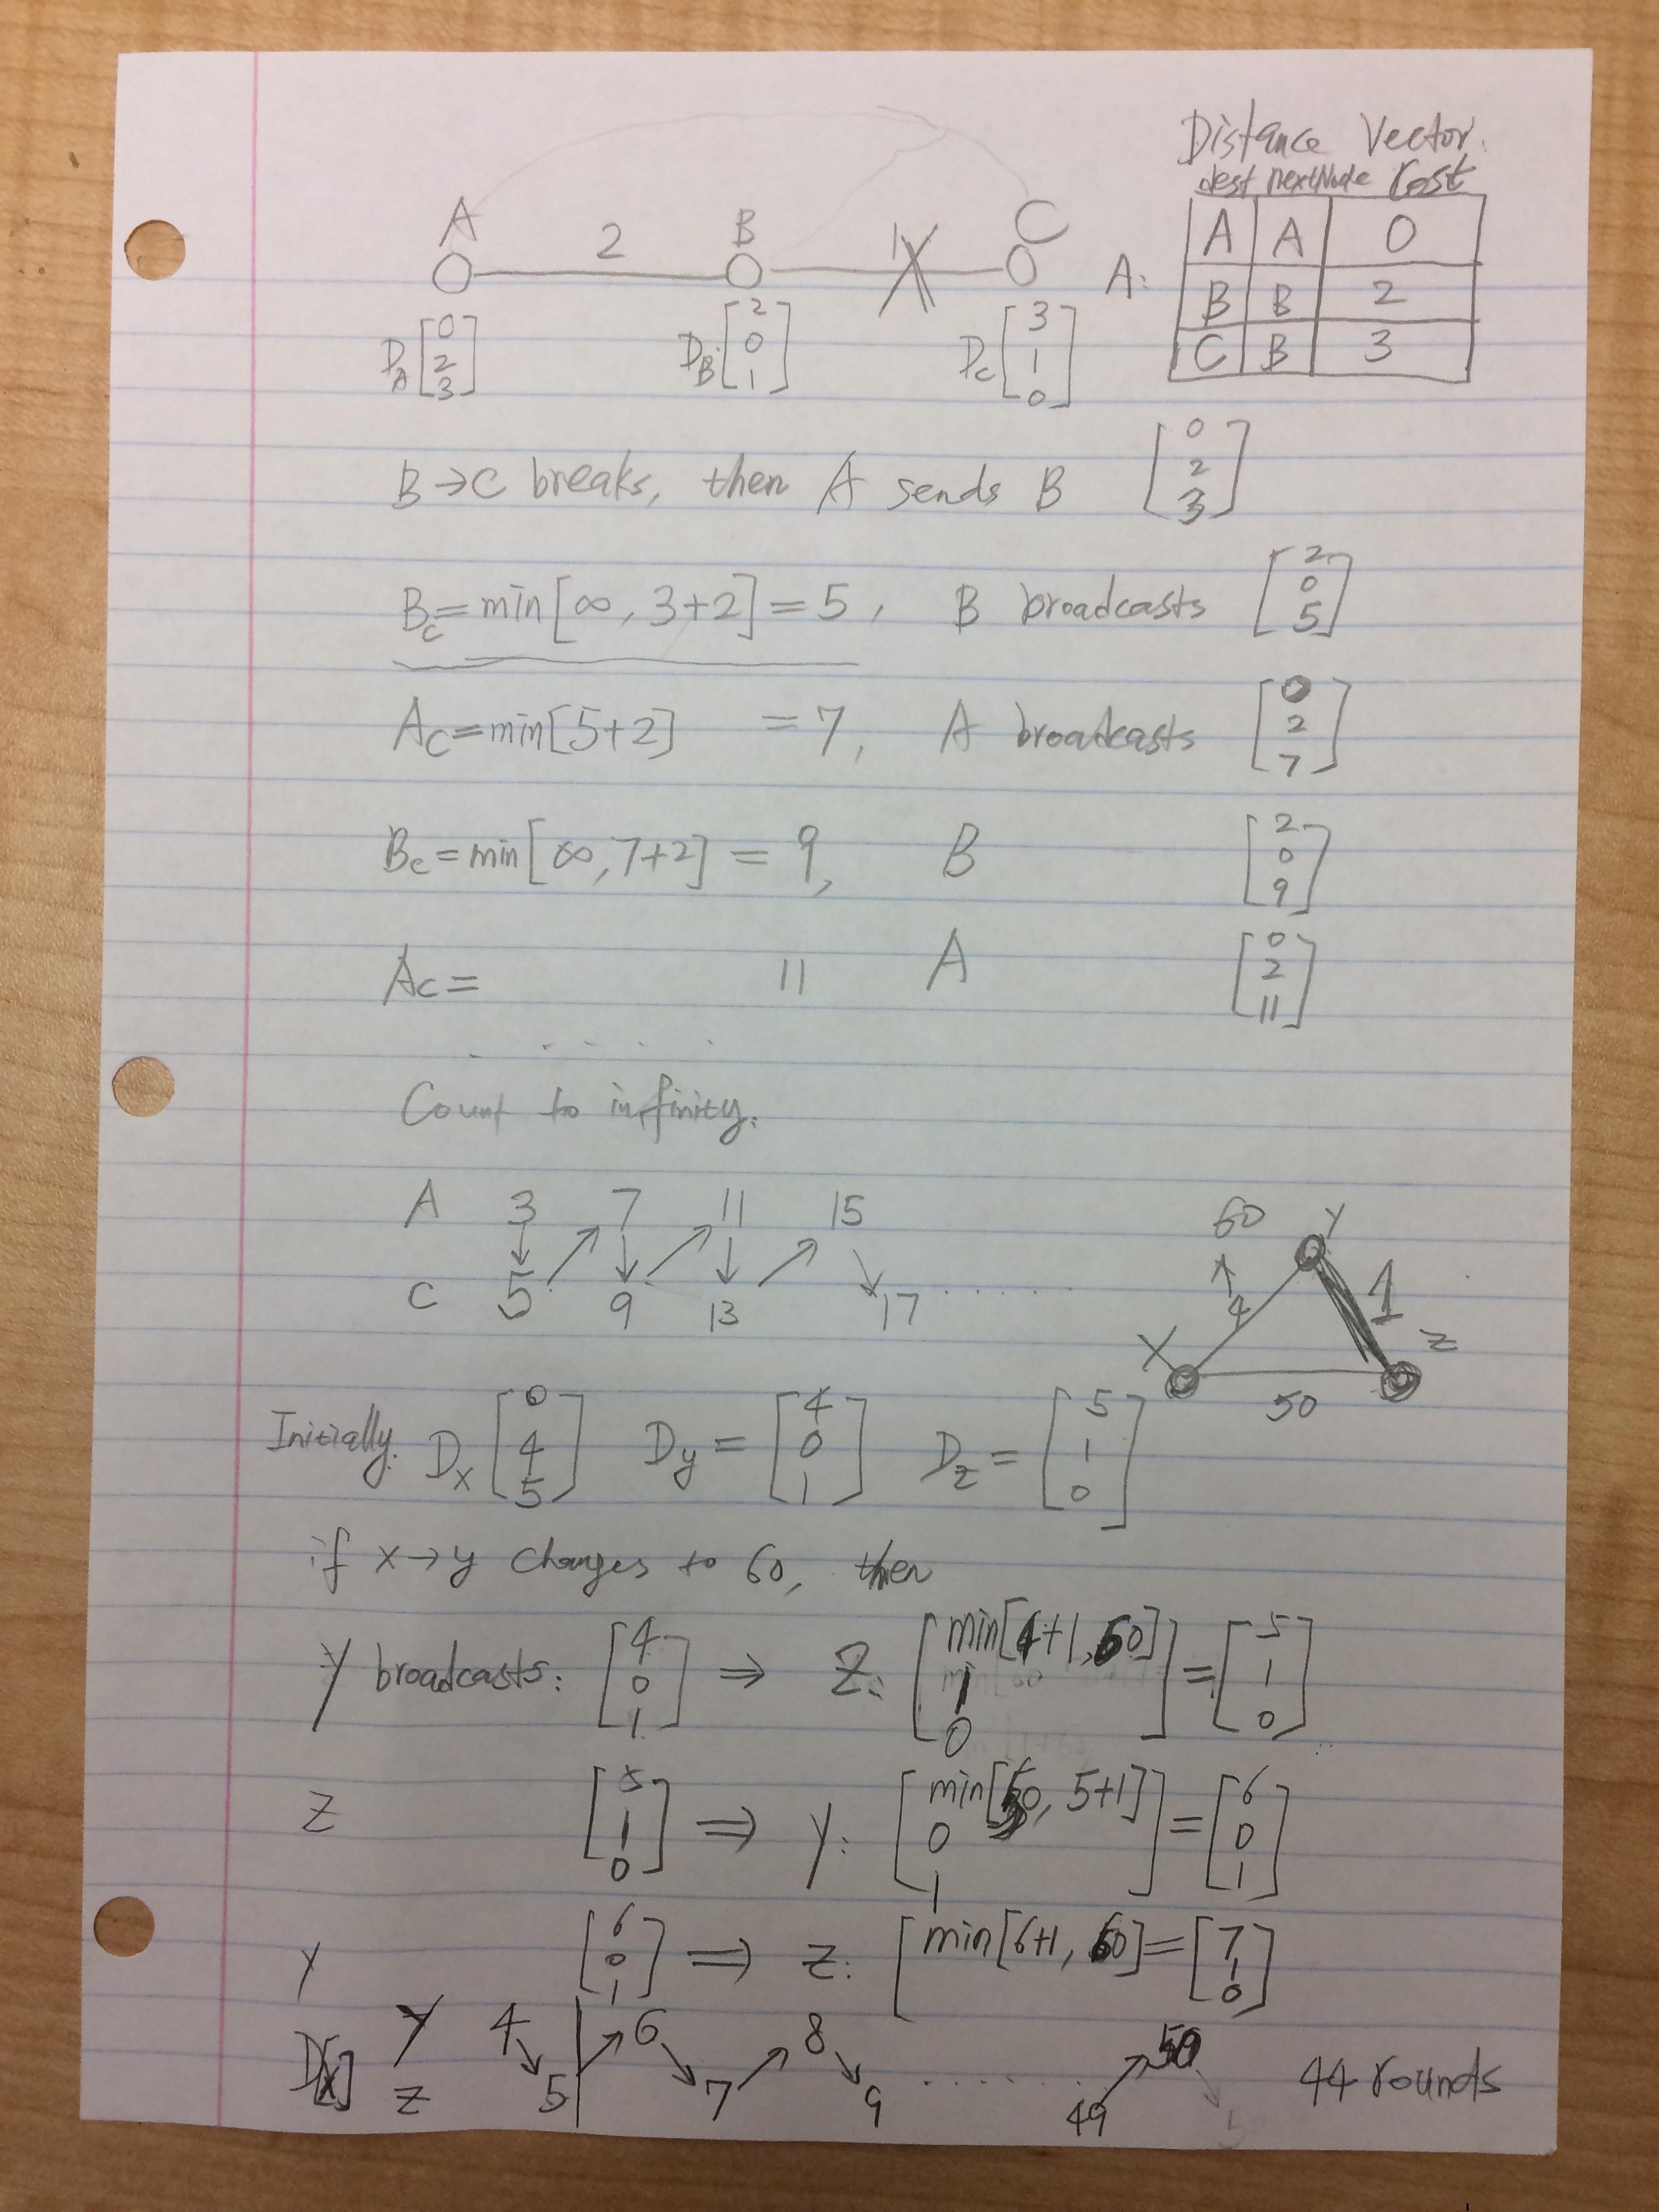 Distance Vector:
dest nextNode Cost
A: A A 0
B B 2
C B 3
A 2 B 1 C
D_A [0 2 3] D_B [2 0 1] D_C [3 1 0]
B→C breaks, then A sends B [0 2 3]
B_C = min[∞, 3+2] = 5, B broadcasts [2 0 5]
A_C = min[5+2] = 7, A broadcasts [0 2 7]
B_C = min[∞, 7+2] = 9, B [2 0 9]
A_C = 11 A [0 2 11]
Count to infinity.
A 3 7 11 15
C 5 9 13 17 ......
60
X 4 Y 1 Z 50
Initially: D_X [0 4 5] D_y = [4 0 1] D_z = [5 1 0]
if x→y changes to 60, then
Y broadcasts: [4 0 1] ⇒ Z: [min[4+1, 50] 1 0] = [5 1 0]
Z [5 1 0] ⇒ Y: [min[60, 5+1] 0 1] = [6 0 1]
Y [6 0 1] ⇒ Z: [min[6+1, 50] 1 0] = [7 1 0]
D[X] Y 4 6 8 ...... 50
Z 5 7 9 49 44 rounds